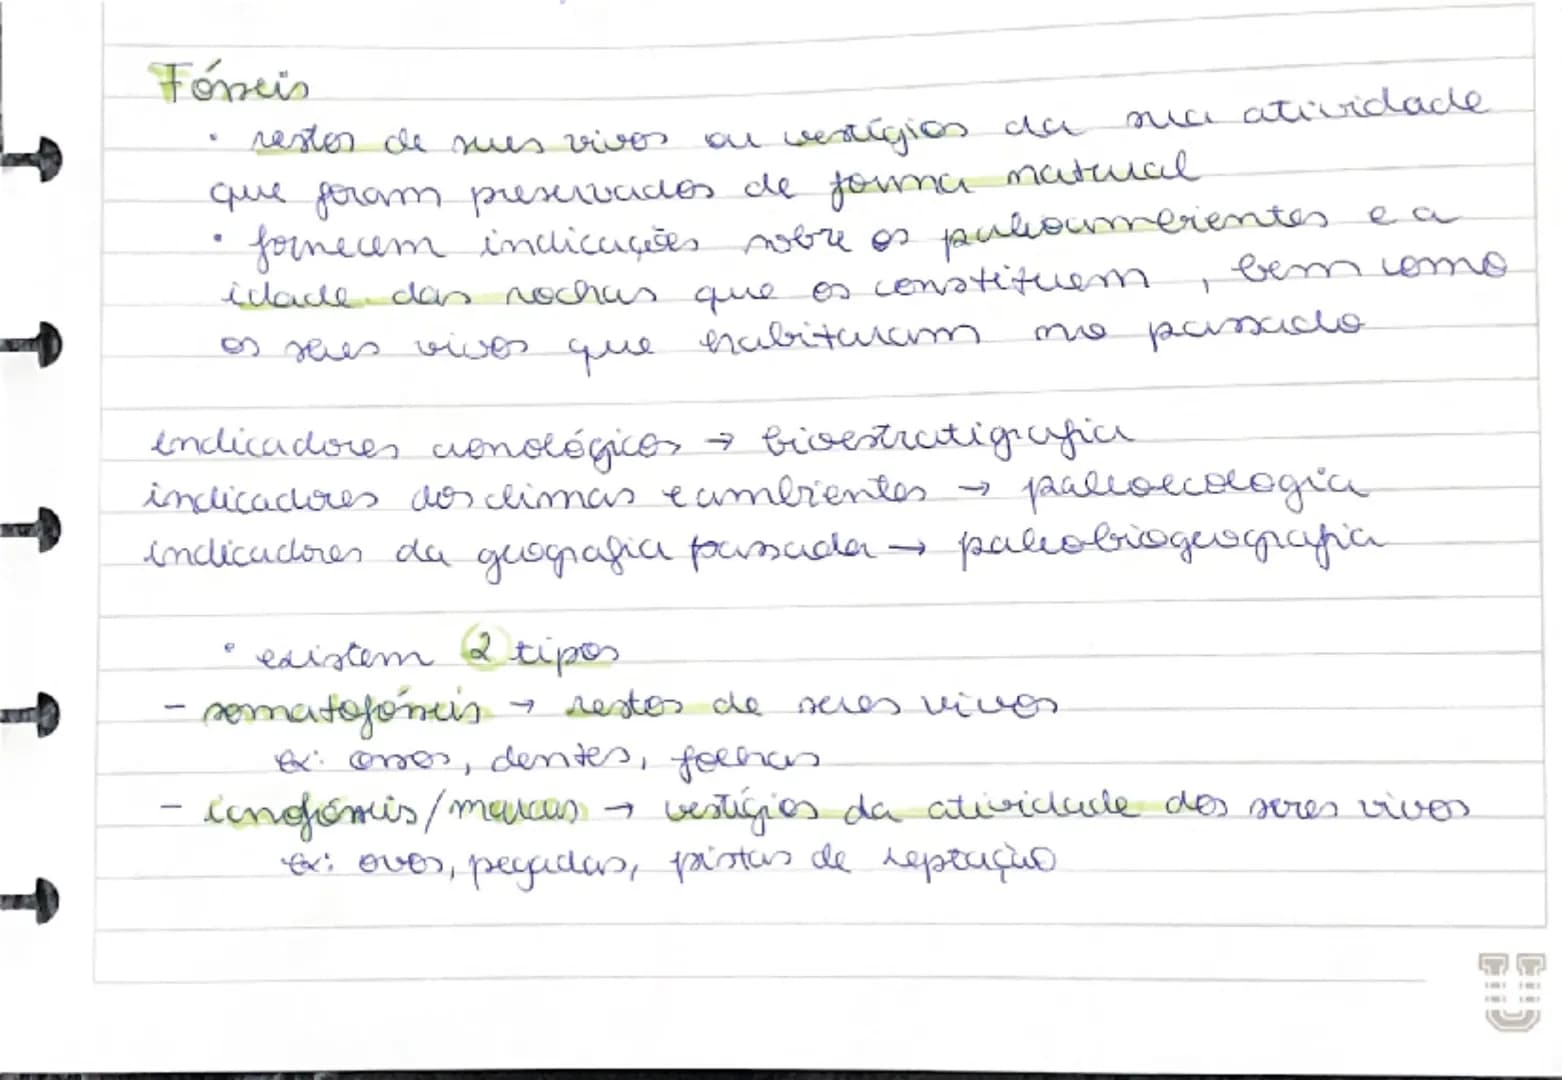 Fósseis
• restos de seres vivos ou vestígios da sua atividade
que foram preservados de forma natural
• fornecem indicações sobre os paleoambientes e a
idade das rochas que os constituem, bem como
os seres vivos que habitaram no passado
indicadores cronológicos → bioestratigrafia
indicadores dos climas e ambientes → paleoecologia
indicadores da geografia passada → paleobiogeografia
• existem 2 tipos
- somatofósseis → restos de seres vivos
ex: ossos, dentes, folhas
- icnofósseis/marcas → vestígios da atividade dos seres vivos
ex: ovos, pegadas, pistas de reptação
U